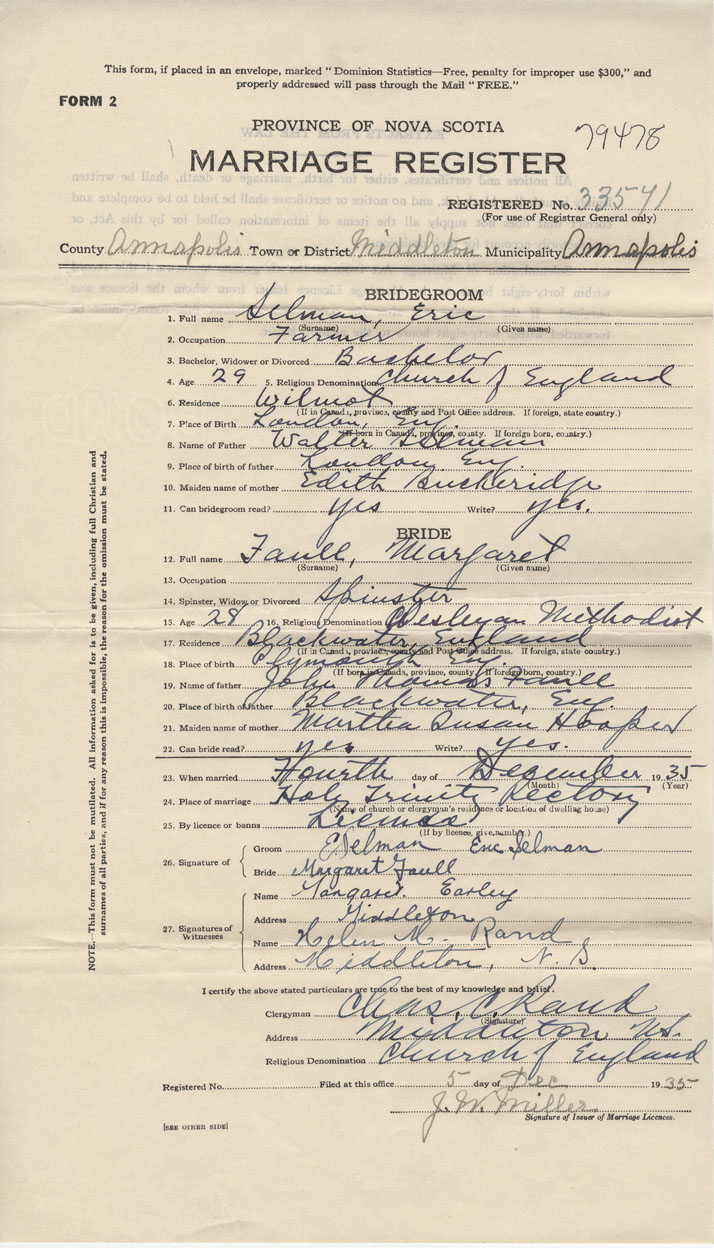 This form, if placed in an envelope, marked " Dominion Statistics—Free, penalty for improper use $300," and
properly addressed will pass through the Mail " FREE."
FORM 2
PROVINCE OF NOVA SCOTIA
79478
MARRIAGE REGISTER
REGISTERED No. 33541
(For use of Registrar General only)
County Annapolis Town or District Middleton Municipality Annapolis
BRIDEGROOM
1. Full name Selman, Eric
(Surname) (Given name)
2. Occupation Farmer
3. Bachelor, Widower or Divorced Bachelor
4. Age 29 5. Religious Denomination Church of England
6. Residence Wilmot
(If in Canada, province, county and Post Office address. If foreign, state country.)
7. Place of Birth London, Eng.
(If born in Canada, province, county. If foreign born, country.)
8. Name of Father Walter Selman
9. Place of birth of father London Eng.
10. Maiden name of mother Edith Buckeridge
11. Can bridegroom read? yes Write? yes.
BRIDE
12. Full name Faull, Margaret
(Surname) (Given name)
13. Occupation
14. Spinster, Widow or Divorced Spinster
15. Age 28 16. Religious Denomination Wesleyan Methodist
17. Residence Blackwater, England
(If in Canada, province, county and Post Office address. If foreign, state country.)
18. Place of birth Plymouth Eng.
(If born in Canada, province, county. If foreign born, country.)
19. Name of father John Thomas Faull
20. Place of birth of father Blackwater, Eng.
21. Maiden name of mother Martha Susan Hooper
22. Can bride read? yes Write? yes.
23. When married Fourth day of December 1935
(Month) (Year)
24. Place of marriage Holy Trinity Rectory
(Name of church or clergyman's residence or location of dwelling house)
25. By licence or banns License
(If by licence, give number)
26. Signature of
Groom ESelman Eric Selman
Bride Margaret Faull
27. Signatures of Witnesses
Name Margaret Earley
Address Middleton
Name Helen M. Rand
Address Middleton, N. S.
I certify the above stated particulars are true to the best of my knowledge and belief.
Clergyman Chas. C. Rand
(Signature)
Address Middleton N.S.
Religious Denomination Church of England
Registered No. Filed at this office 5 day of Dec 1935
J. W. Miller
Signature of Issuer of Marriage Licences.
[SEE OTHER SIDE]
NOTE.—This form must not be mutilated. All information asked for is to be given, including full Christian and
surnames of all parties, and if for any reason this is impossible, the reason for the omission must be stated.